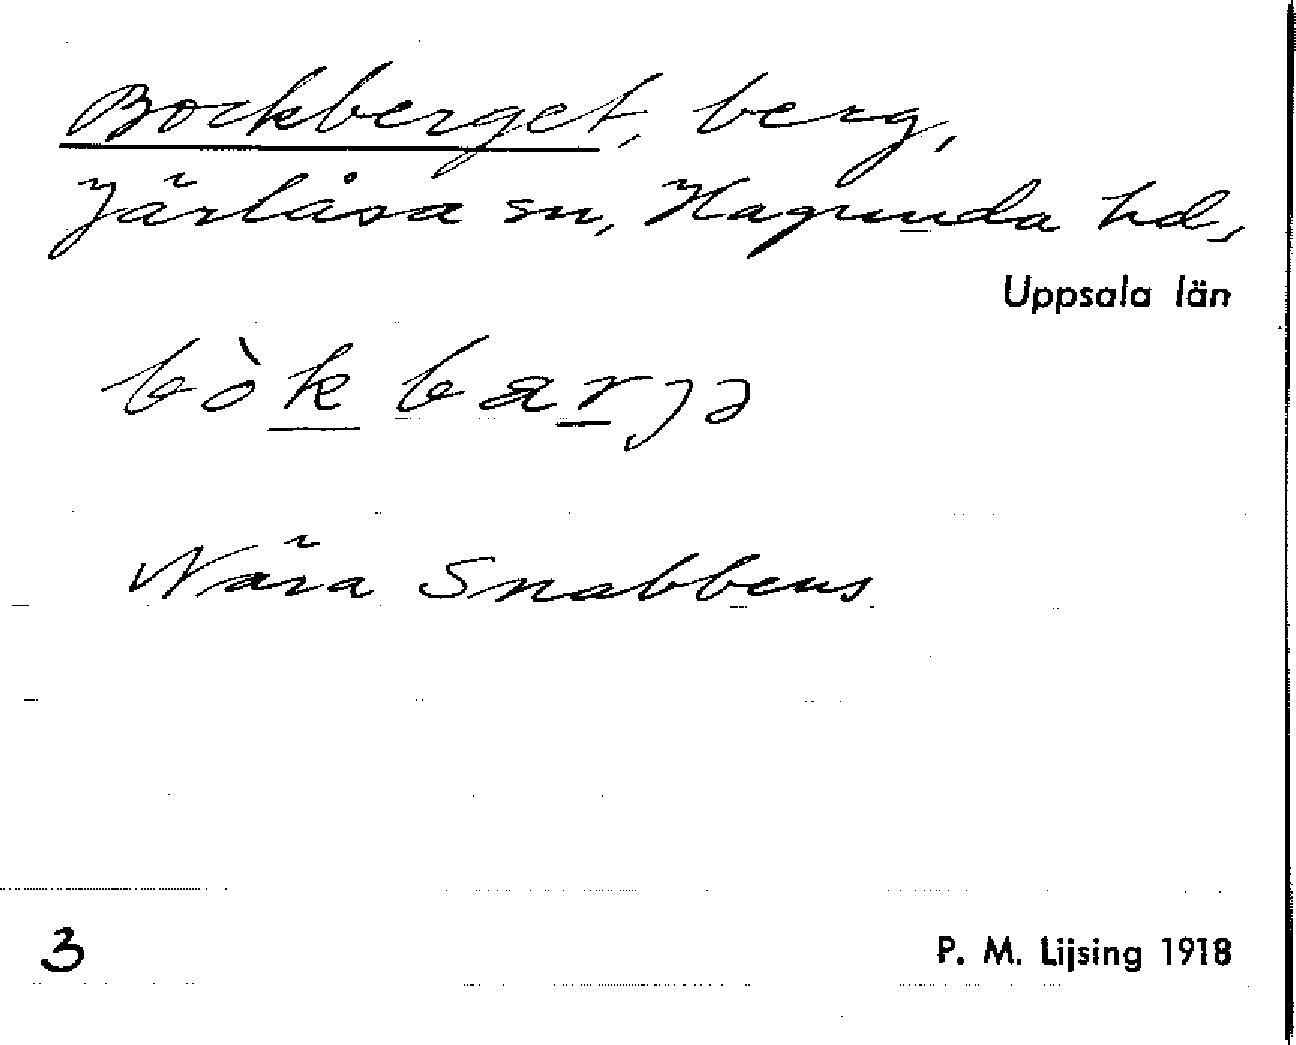 Bockberget, berg,
Järlåsa sn, Hagunda hd,
Uppsala län
bòkbarjə
Nära Snabbens
3
P. M. Lijsing 1918